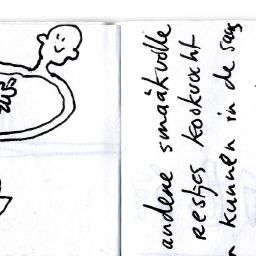 andere smaakvolle
restjes kookvocht
kunnen in de saus